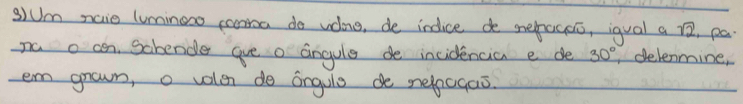 3) Um raio luminoso passa do vidro, de índice de refração, igual a √2, pa-
ra o ar. Sabendo que o ângulo de incidência e de 30°, determine,
em graus, o valor do ângulo de refração.